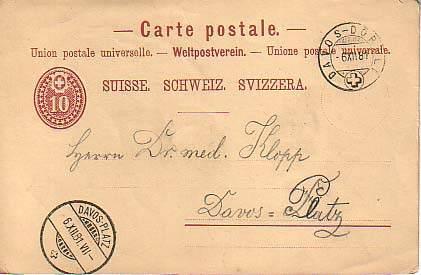 — Carte postale. —
Union postale universelle. — Weltpostverein. — Unione postale universale.
10
SUISSE. SCHWEIZ. SVIZZERA.
DAVOS-DORFLI
-6.XII.91
Herrn Dr. med. Klopp
Davos-Platz
DAVOS-PLATZ
6.XII.91.VII-